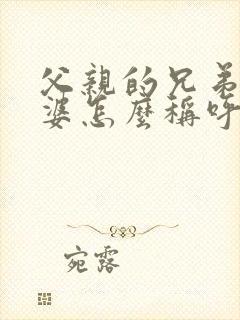 父親的兄弟
婆怎麼稱呼
宛露